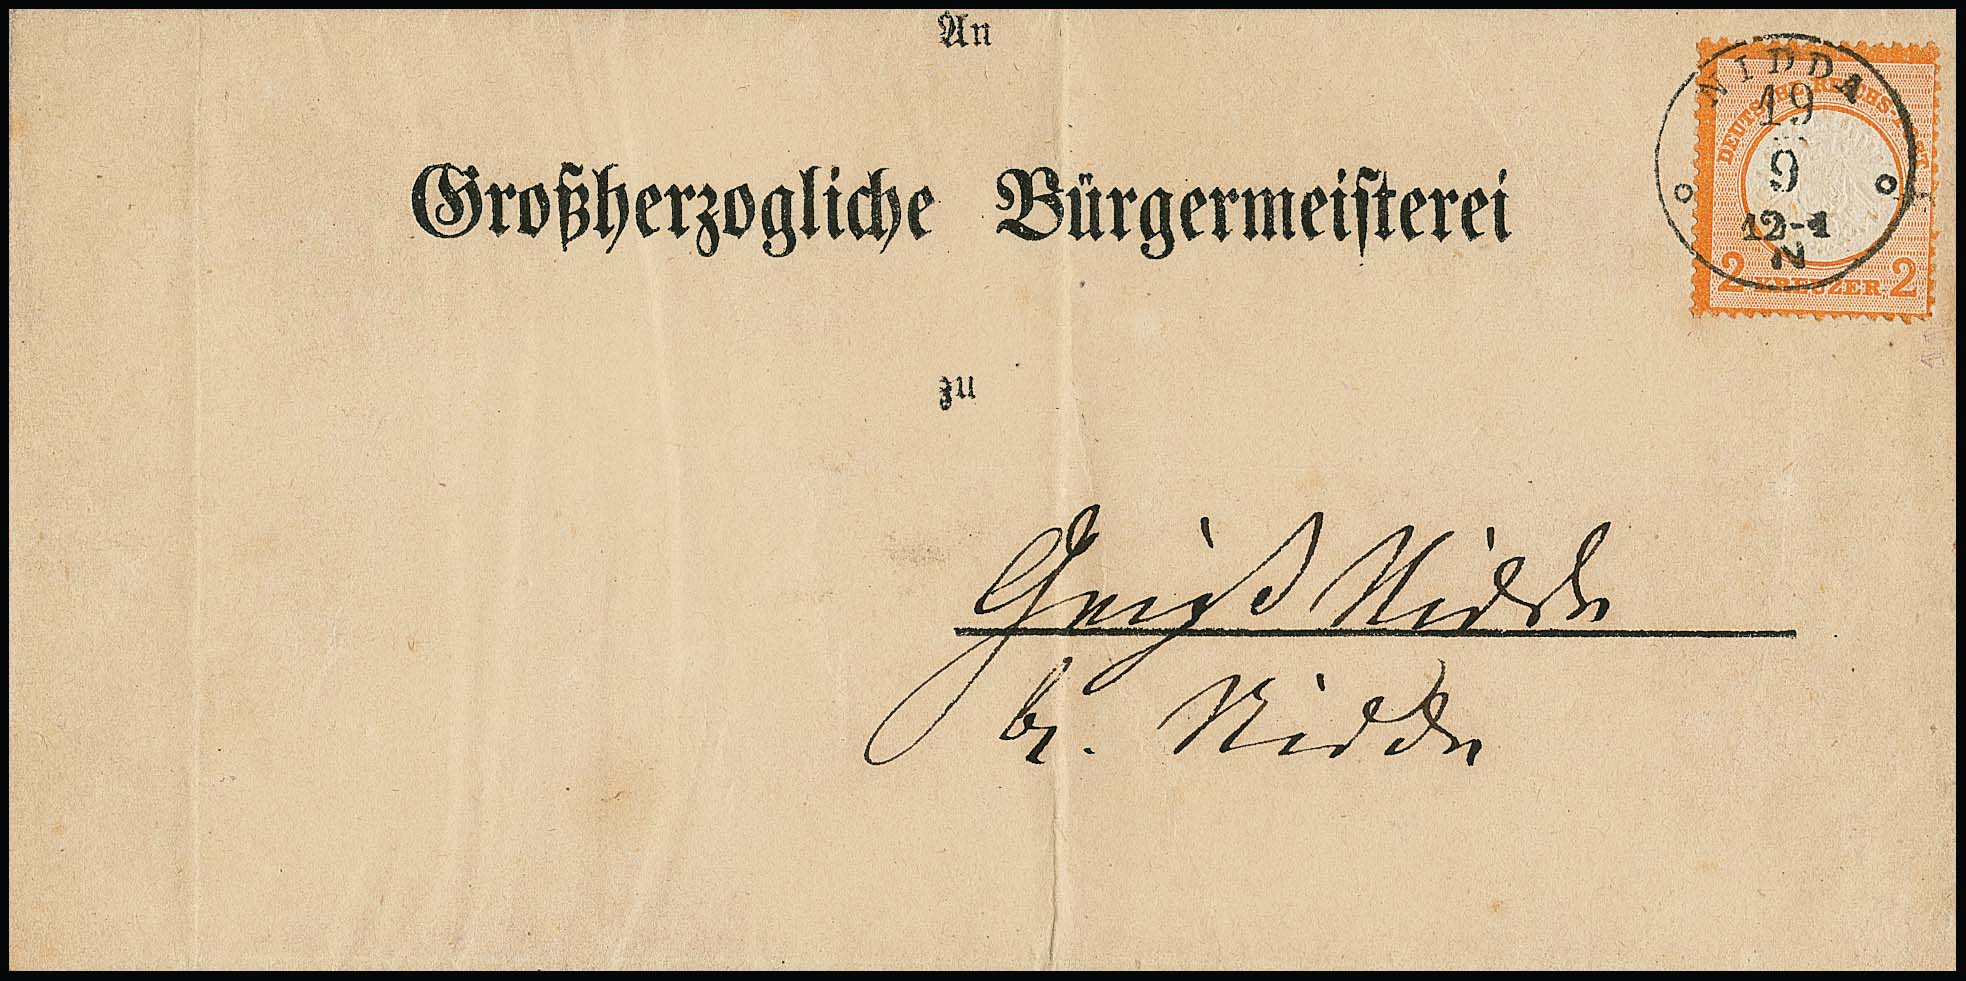 An
Großherzogliche Bürgermeisterei
zu
Geiß Nidda
bei Nidda
NIDDA
19
9
12-1
N
DEUTSCHE REICHS-POST
2 KREUZER 2